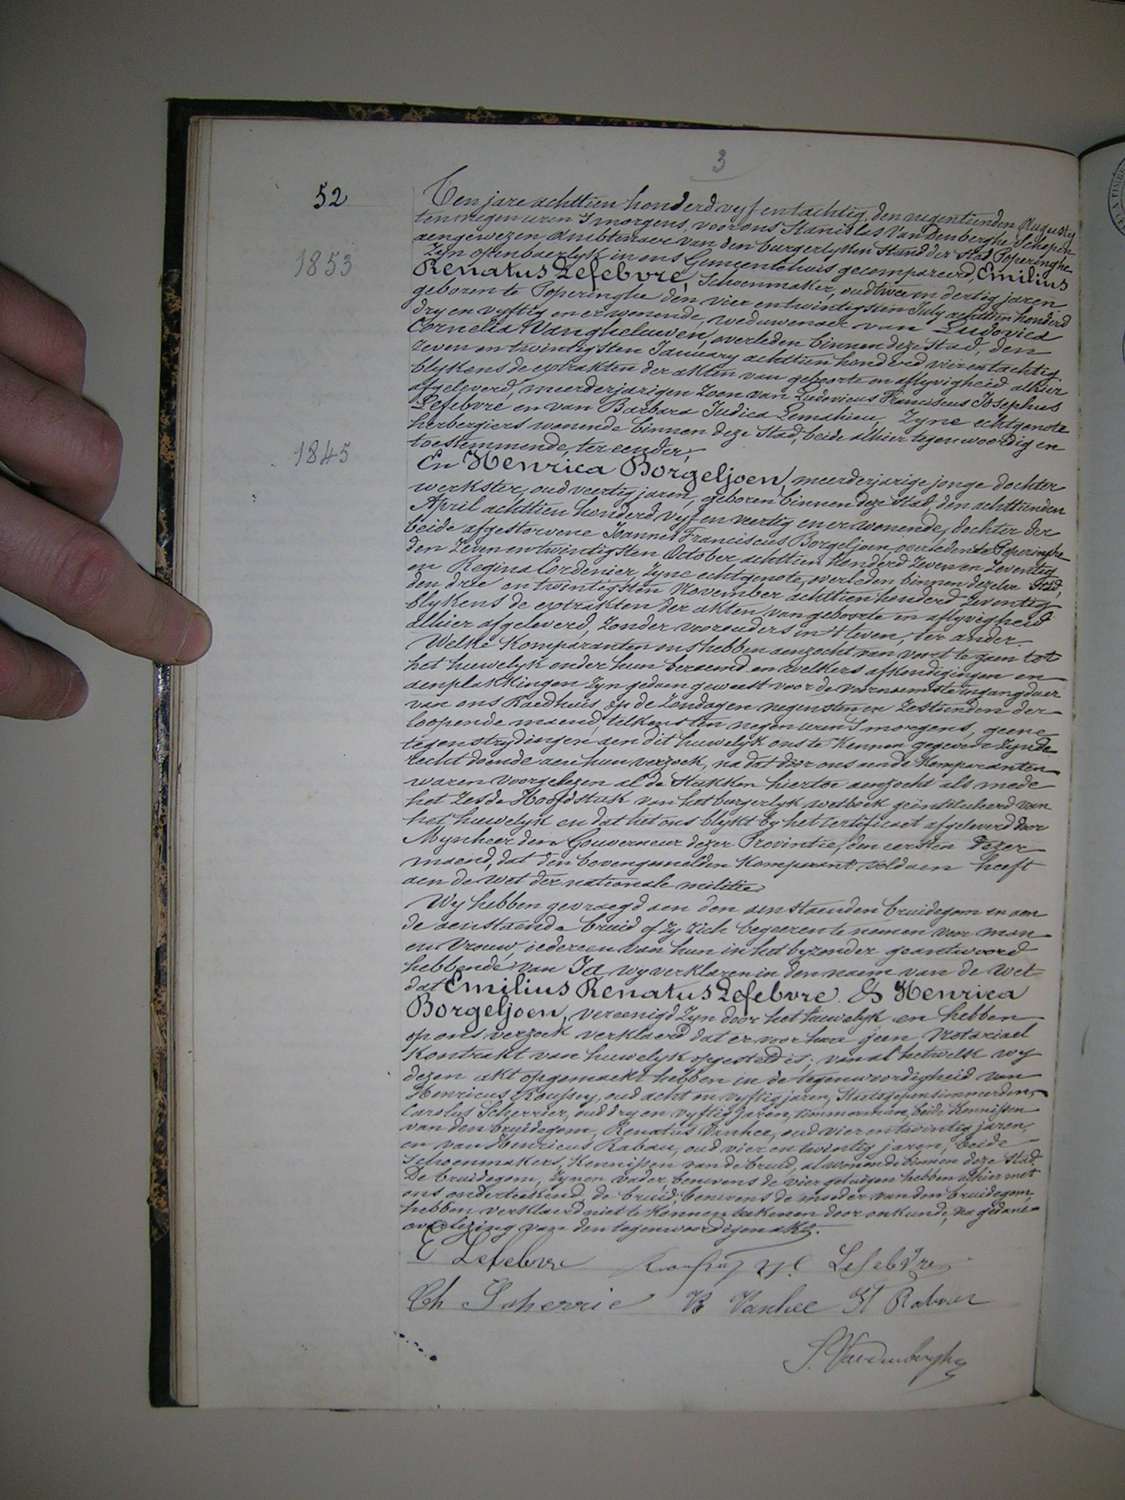 3
52
Ten jare achttien honderd vyf en tachtig, den negentienden Augusty
ten negen uren 's morgens, voor ons Stanislas Van Den Berghe Schepen
aengewezen Ambtenaer van den burgerlyken Stand der Stad Poperinghe
Zyn openbaerlyk in ons Gemeentehuis gecompareerd, Emilius
1853
Renatus Lefebvre, Schoenmaker, oud twee en dertig jaren
geboren te Poperinghe den vier en twintigsten July achttien honderd
dry en vyftig en er wonende, weduwenaer van Ludovica
Cornelia Vangheluwen, overleden binnen deze Stad, den
zeven en twintigsten January achttien honderd vier en tachtig
blykens de extrakten der akten van geboorte en aflyvigheid alhier
afgeleverd, meerderjarigen Zoon van Ludovicus Franciscus Josephus
Lefebvre en van Barbara Judica Lemahieu, Zyne echtgenote
herbergiers wonende binnen deze Stad, beide alhier tegenwoordig en
toestemmende, ter eender;
1845
En Henrica Borgeljoen, meerderjarige jonge dochter
werkster, oud veertig jaren, geboren binnen deze Stad, den achttienden
April achttien honderd vyf en veertig en er wonende, dochter der
beide afgestorvene Joannes Franciscus Borgeljoen, overleden te Poperinghe
den Zeven en twintigsten October achttien honderd Zeven en Zeventig
en Regina Cordenier, Zyne echtgenote, overleden binnen dezelve Stad,
den drie en twintigsten November achttien honderd Zeventig
blykens de extrakten der akten van geboorte en aflyvigheid
alhier afgeleverd, Zonder voorouders in 't leven, ter ander.
Welke Komparanten ons hebben aenzocht van voort te gaen tot
het huwelyk onder hun beraemd en welkers afkondigingen en
aenplakkingen Zyn gedaen geweest voor de voornaemste ingangdeur
van ons Raedhuis op de Zondagen negensten en Zestienden der
loopende maend, telkens ten negen uren 's morgens, geene
tegenstrydingen aen dit huwelyk ons te Kennen gegeven Zynde
recht doende aen hun verzoek, na dat door ons aen de Komparanten
waren voorgelezen al de Stukken hiertoe aenzocht als mede
het Zesde Hoofdstuk van het burgerlyk wetboek geintituleerd van
het huwelyk en dat het ons blykt by het certificaet afgeleverd door
Mynheer den Gouverneur dezer Provintie, den eersten dezer
maend, dat den bovengemelden Komparant voldaen heeft
aen de wet der nationale militie
Wy hebben gevraegd aen den aenstaenden bruidegom en aen
de aenstaende bruid of Zy Zich begeeren te nemen voor man
en vrouw, iedereen van hun in het byzonder geantwoord
hebbende van Ja, wy verklaren in den naem van de wet
dat Emilius Renatus Lefebvre & Henrica
Borgeljoen, vereenigd Zyn door het huwelyk en hebben
op ons verzoek verklaerd dat er voor hun geen Notariael
Kontrakt van huwelyk opgesteld is; van al hetwelk wy
dezen akt opgemaekt hebben in de tegenwoordigheid van
Henricus Roussey, oud acht en vyftig jaren,
Carolus Scherrier, oud dry en vyftig Jaren, timmerman, beide Kennissen
van den bruidegom, Renatus Vanhee, oud vier en twintig jaren,
en van Henricus Rabau, oud vier en twintig jaren, beide
Schoenmakers, Kennissen van de bruid, al wonende binnen deze Stad.
De bruidegom, Zynen vader, benevens de vier getuigen hebben alhier met
ons onderteekend, de bruid, benevens de moeder van den bruidegom,
hebben verklaerd niet te Konnen teekenen door onkunde, na gedane
voorlezing van den tegenwoordigen akt.
E Lefebvre Lefebvre
Ch Scherrie R Vanhee H Rabau
S. Vandenberghe